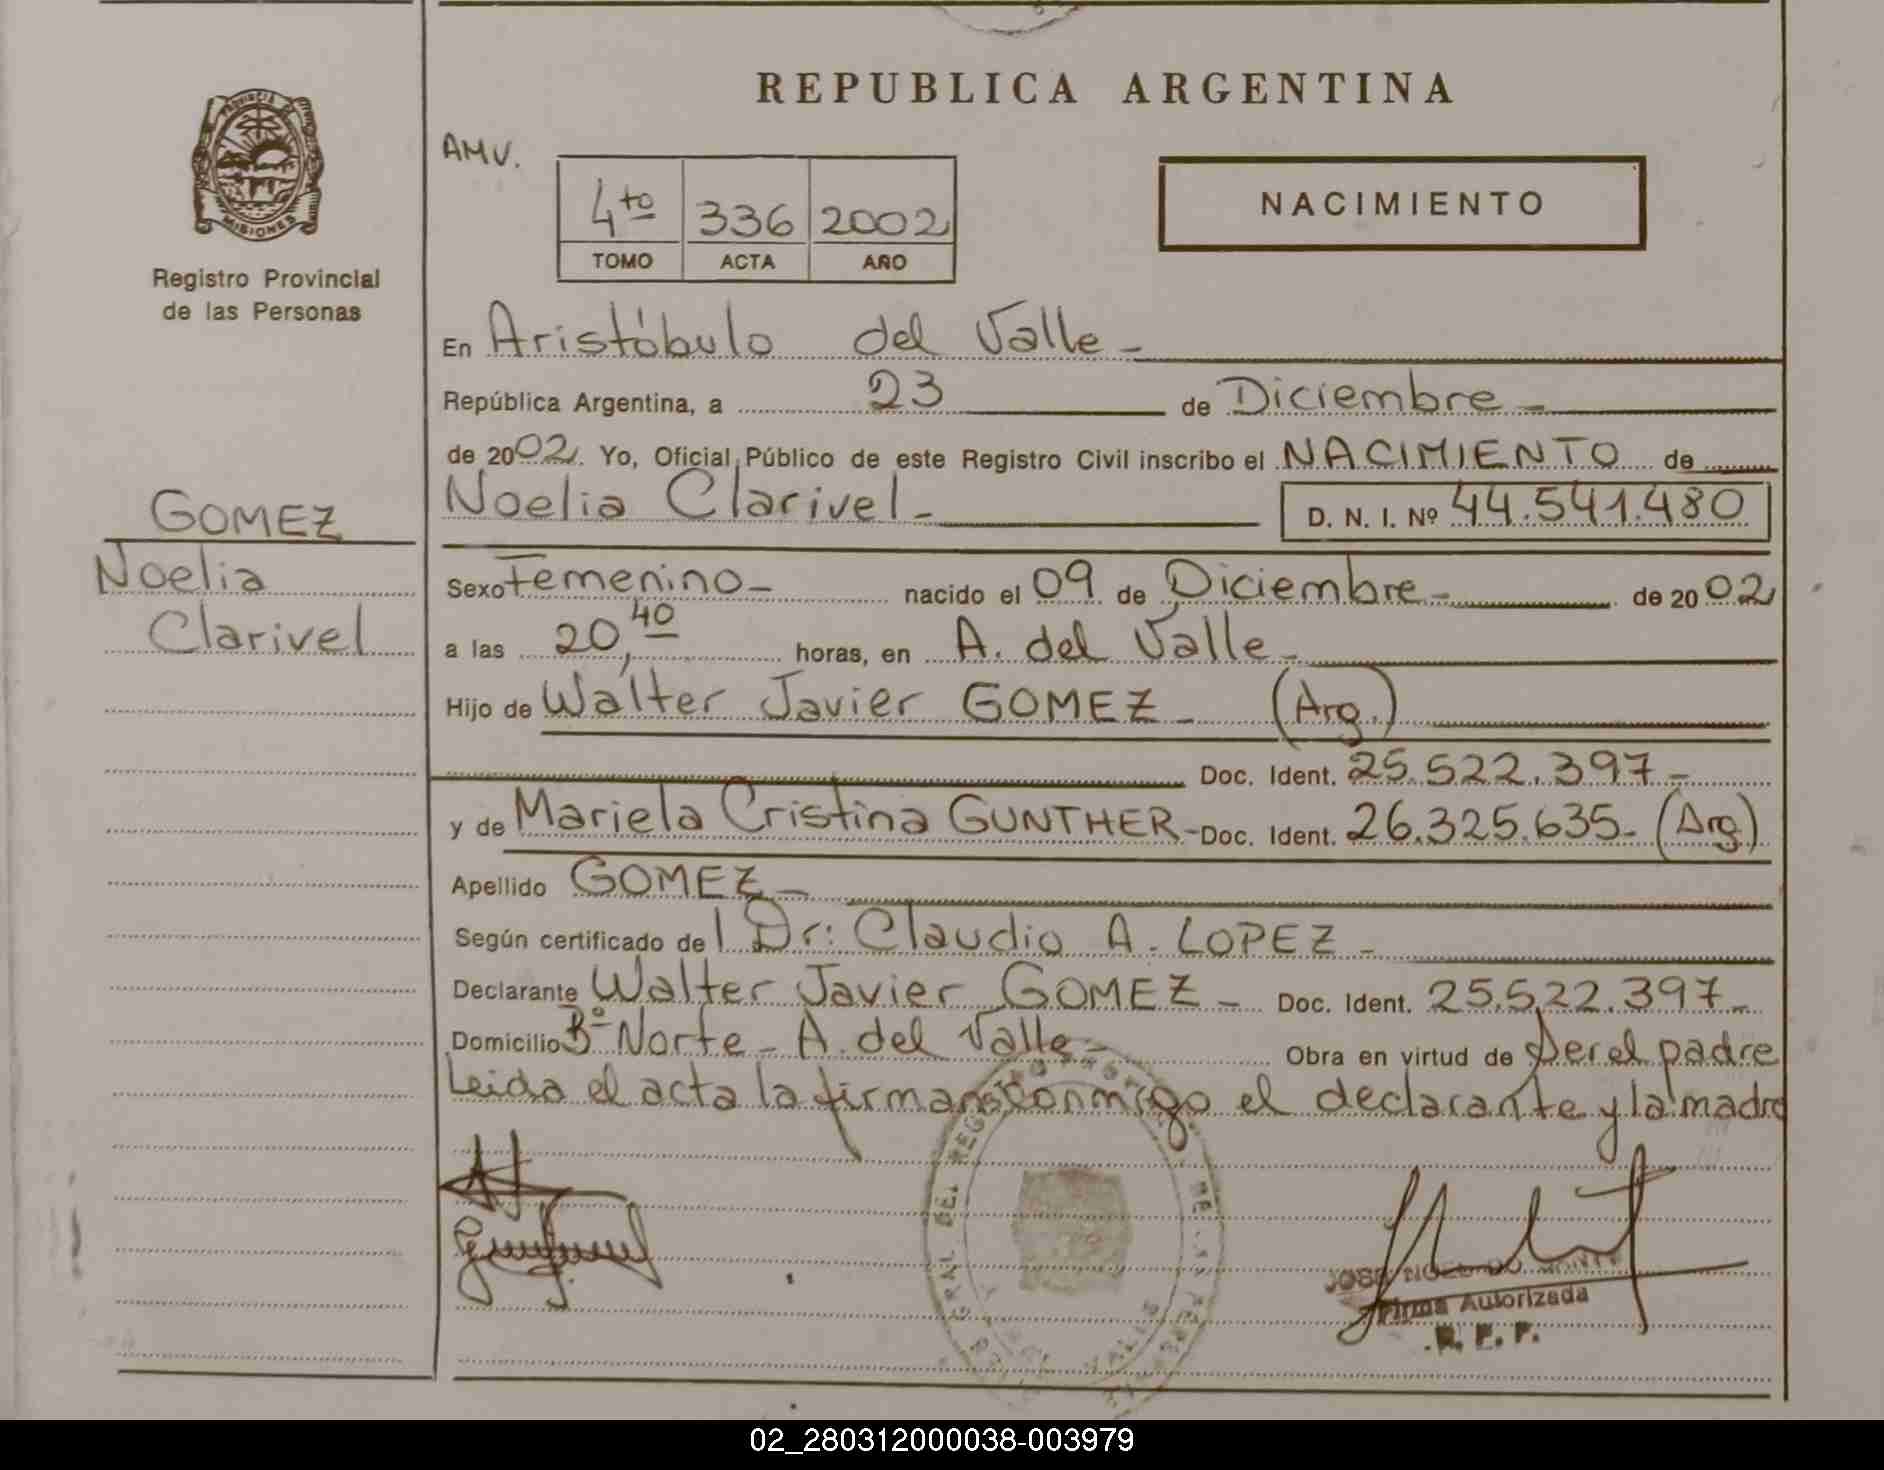 REPUBLICA ARGENTINA
PROVINCIA DE MISIONES
Registro Provincial
de las Personas
AMV.
4to 336 2002
TOMO ACTA AÑO
NACIMIENTO
En Aristóbulo del Valle-
República Argentina, a 23 de Diciembre-
de 2002. Yo, Oficial Público de este Registro Civil inscribo el NACIMIENTO de
Noelia Clarivel- D. N. I. Nº 44.541.480
GOMEZ
Noelia
Clarivel
Sexo Femenino- nacido el 09 de Diciembre- de 2002
a las 20,40 horas, en A. del Valle-
Hijo de Walter Javier GOMEZ- (Arg.)
Doc. Ident. 25.522.397-
y de Mariela Cristina GUNTHER- Doc. Ident. 26.325.635- (Arg)
Apellido GOMEZ-
Según certificado del Dr: Claudio A. LOPEZ-
Declarante Walter Javier GOMEZ- Doc. Ident. 25.522.397-
Domicilio Bº Norte- A. del Valle- Obra en virtud de Ser el padre
Leida el acta la firman conmigo el declarante y la madre
Firma Autorizada
R. P. P.
02_280312000038-003979